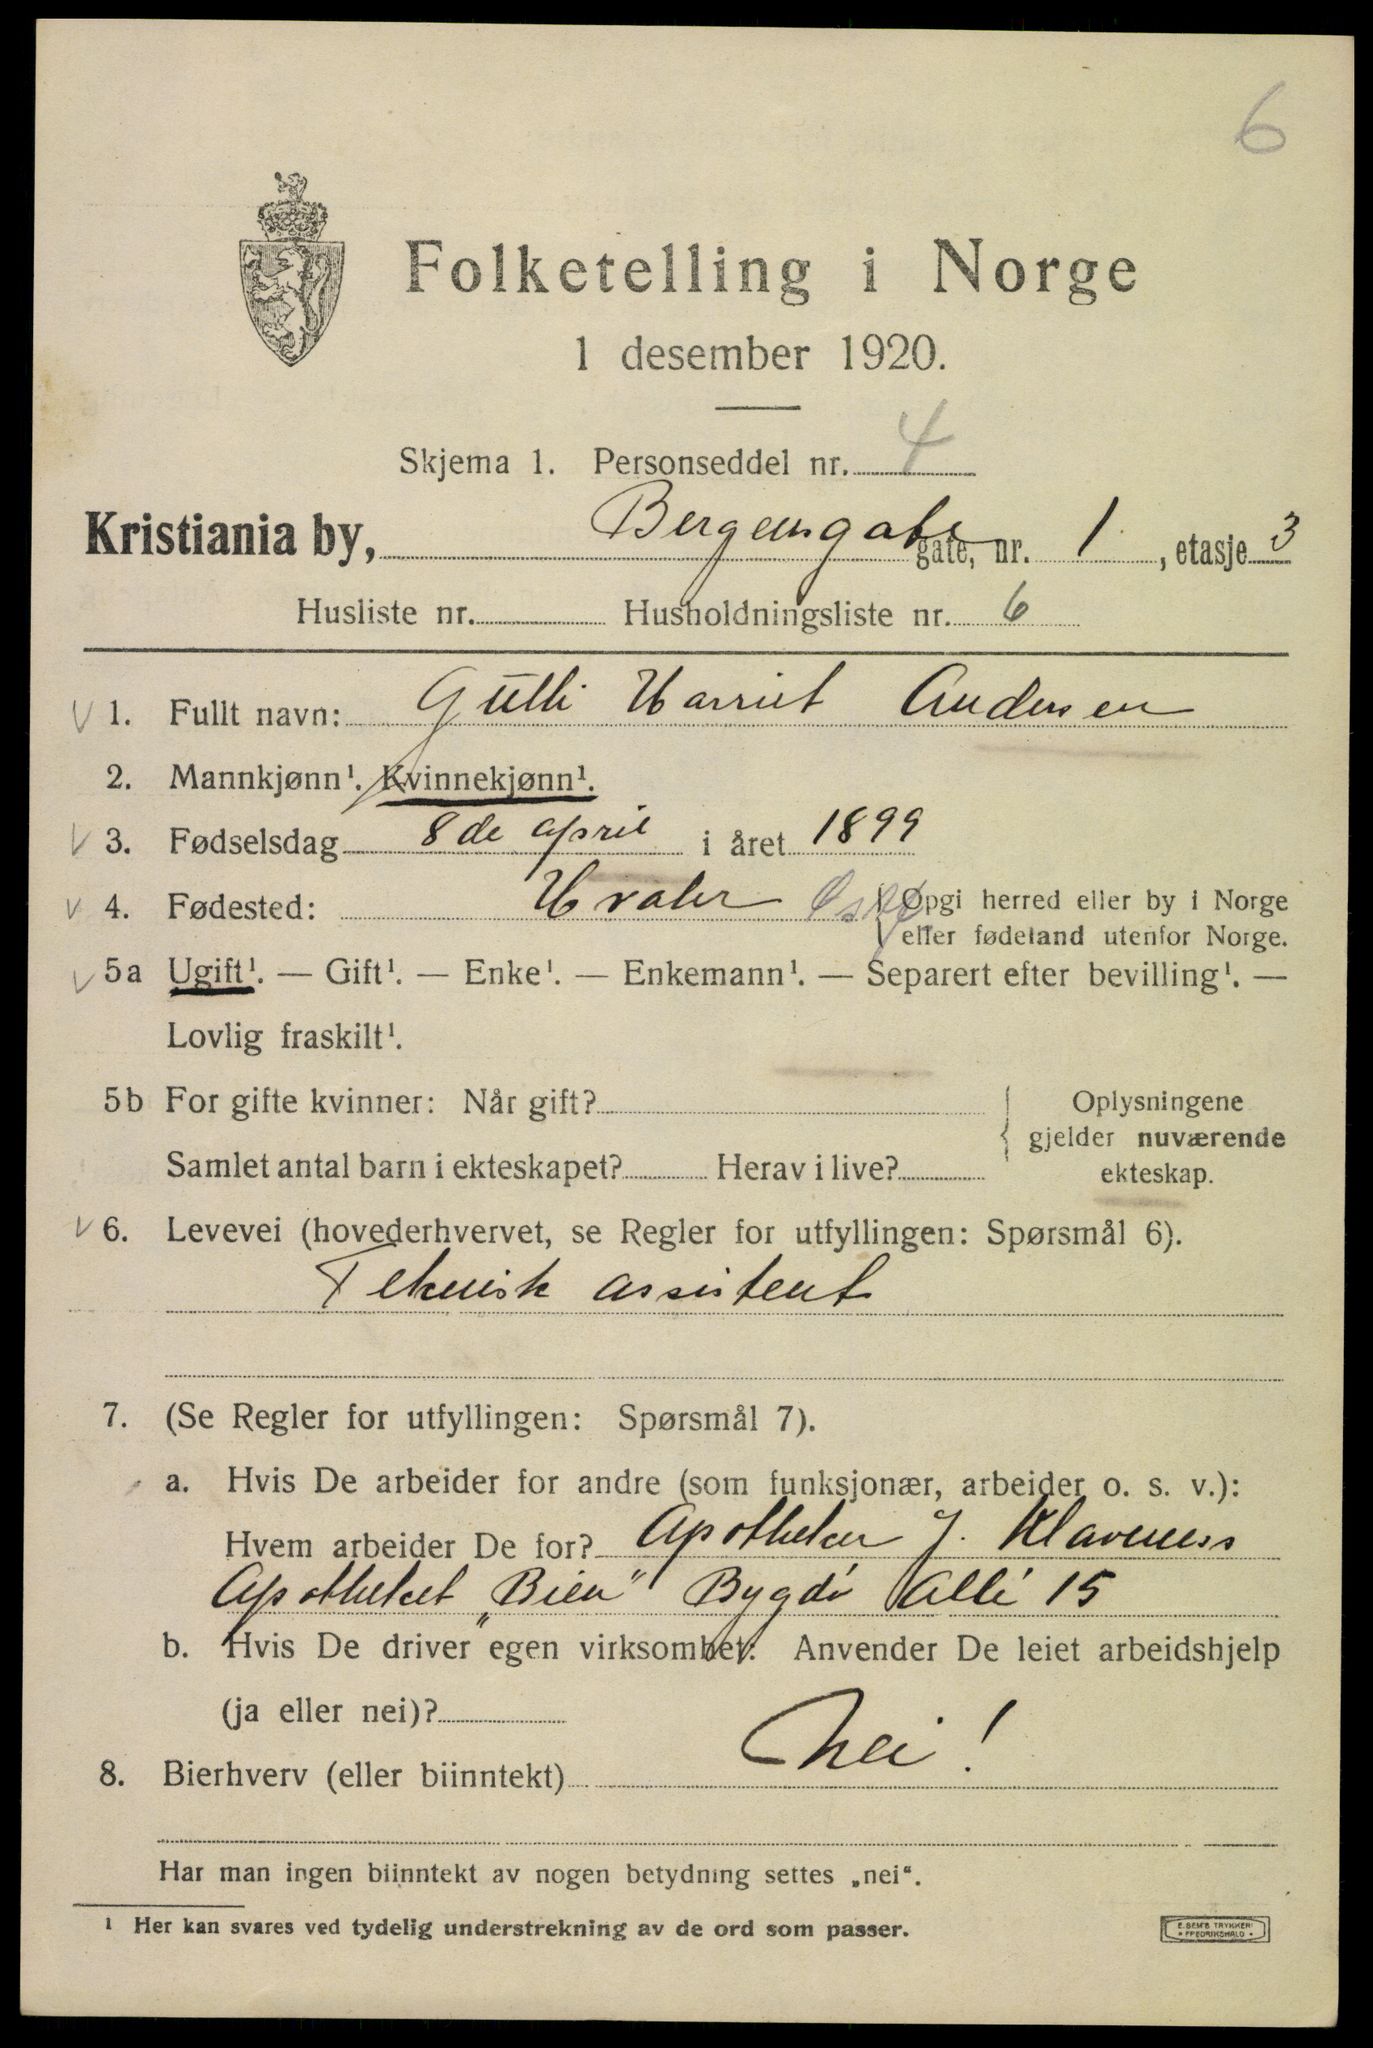 6
Folketelling i Norge
1 desember 1920.
Skjema 1. Personseddel nr. 4
Kristiania by, Bergensgate gate, nr. 1, etasje 3
Husliste nr. Husholdningsliste nr. 6
1. Fullt navn: Gulli Harriet Andersen
2. Mannkjønn¹. Kvinnekjønn¹.
3. Fødselsdag 8de april i året 1899
4. Fødested: Hvaler {Opgi herred eller by i Norge
eller fødeland utenfor Norge.
5a Ugift¹. — Gift¹. — Enke¹. — Enkemann¹. — Separert efter bevilling¹. —
Lovlig fraskilt¹.
5b For gifte kvinner: Når gift? { Oplysningene
gjelder nuværende
Samlet antal barn i ekteskapet? Herav i live? ekteskap.
6. Levevei (hovederhvervet, se Regler for utfyllingen: Spørsmål 6).
Teknisk assistent
7. (Se Regler for utfyllingen: Spørsmål 7).
a. Hvis De arbeider for andre (som funksjonær, arbeider o. s. v.):
Hvem arbeider De for? Apotheker J. Klaveness
Apotheket „Bien" Bygdö Allé 15
b. Hvis De driver egen virksomhet: Anvender De leiet arbeidshjelp
(ja eller nei)?
8. Bierhverv (eller biinntekt) Nei!
Har man ingen biinntekt av nogen betydning settes „nei".
¹ Her kan svares ved tydelig understrekning av de ord som passer.
E. SEM'S TRYKKERI
FREDRIKSHALD